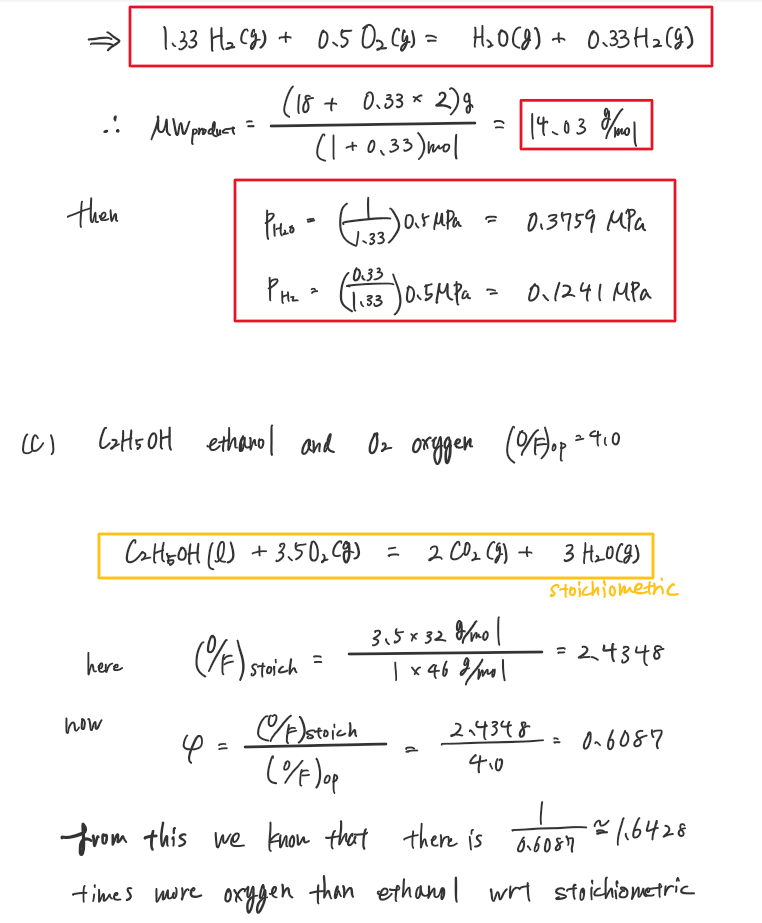 ⇒ 1.33 H₂(g) + 0.5 O₂(g) = H₂O(g) + 0.33 H₂(g)
∴ MWproduct = (18 + 0.33 × 2)g / (1 + 0.33)mol = 14.03 g/mol
then P_H₂O = (1/1.33) 0.5 MPa = 0.3759 MPa
P_H₂ = (0.33/1.33) 0.5 MPa = 0.1241 MPa
(C) C₂H₅OH ethanol and O₂ oxygen (O/F)op = 4.0
C₂H₅OH (l) + 3.5 O₂(g) = 2 CO₂(g) + 3 H₂O(g)
stoichiometric
here (O/F)stoich = 3.5 × 32 g/mol / 1 × 46 g/mol = 2.4348
now φ = (O/F)stoich / (O/F)op = 2.4348 / 4.0 = 0.6087
from this we know that there is 1/0.6087 ≃ 1.6428
times more oxygen than ethanol wrt stoichiometric